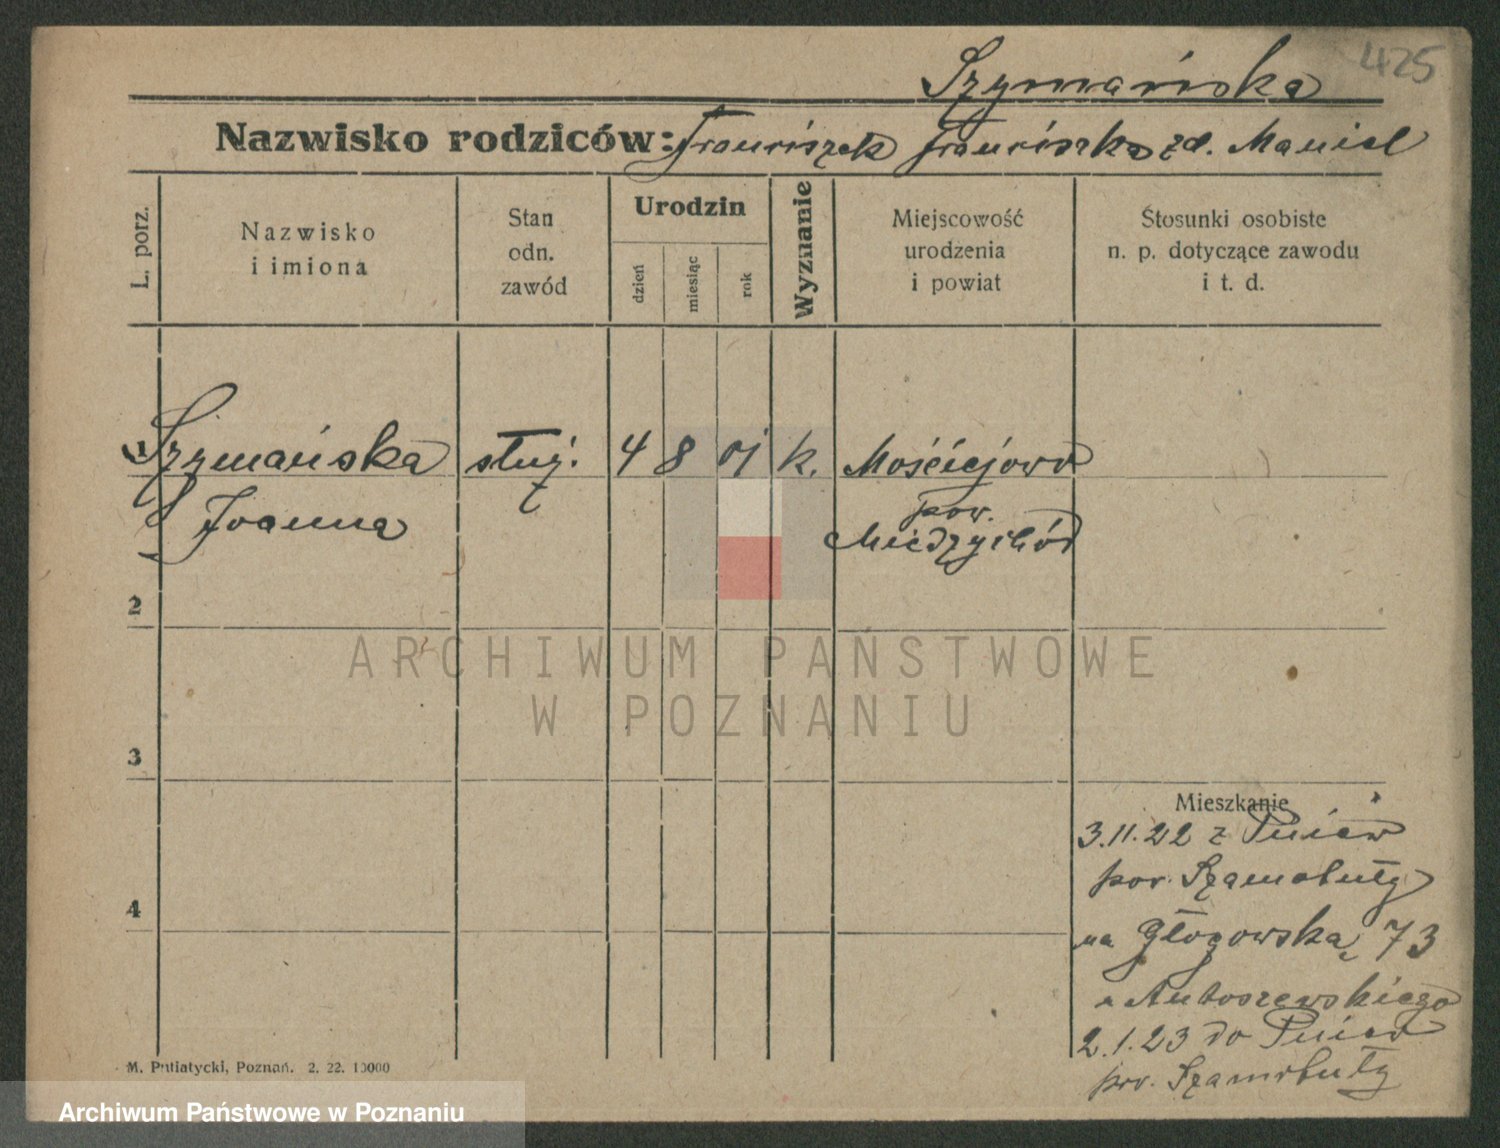 425
Szymańska
Nazwisko rodziców: Franciszek Franciszka zd. Maniel
L. porz.
Nazwisko
i imiona
Stan
odn.
zawód
Urodzin
dzień
miesiąc
rok
Wyznanie
Miejscowość
urodzenia
i powiat
Stosunki osobiste
n. p. dotyczące zawodu
i t. d.
1 Szymańska służ. 4 8 01 k. Mościejewo
Joanna pow.
Miedzychód
2
ARCHIWUM PAŃSTWOWE
W POZNANIU
3
Mieszkanie
3.11.22 z Pniew
pow. Szamotuły
4
na Głogowską 73
u Antoszewskiego
2.1.23 do Pniew
pow. Szamotuły
M. Putiatycki, Poznań. 2. 22. 10000
Archiwum Państwowe w Poznaniu